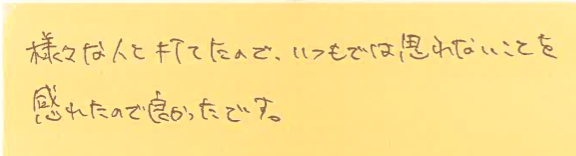 様々な人と打てたので、いつもでは思れないことを
感れたので良かったです。